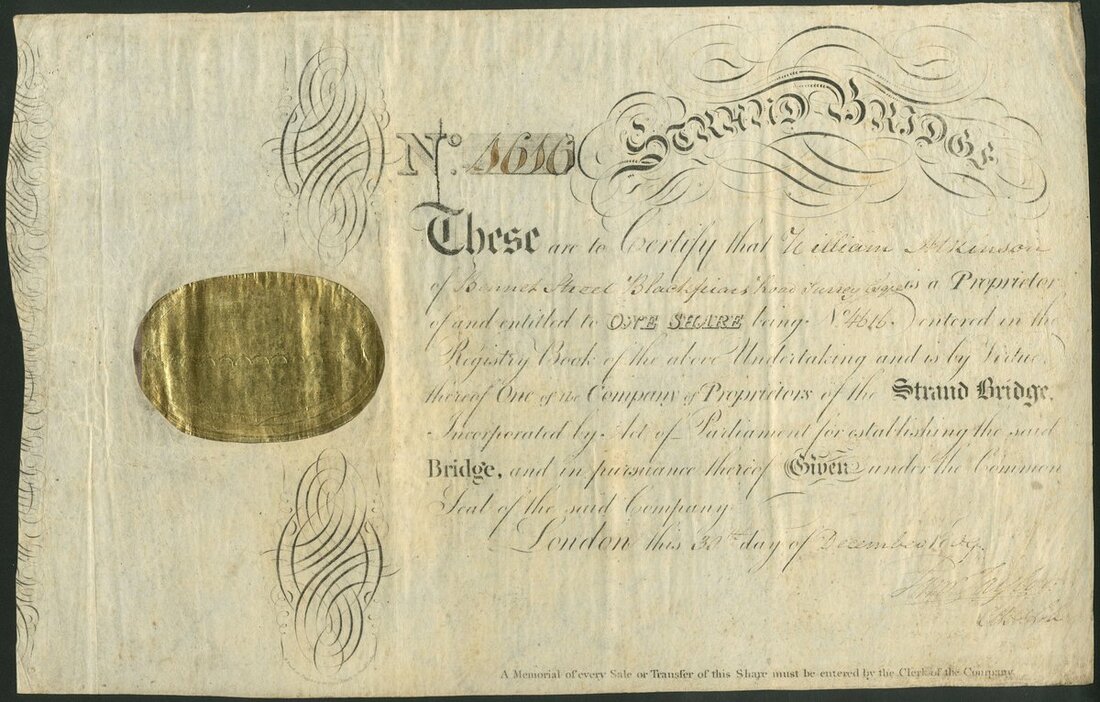 STRAND BRIDGE
No. 4616
These are to Certify that William Atkinson
of Bennet Street Blackfriars Road Surrey is a Proprietor
of and entitled to ONE SHARE being No. 4616 entered in the
Registry Book of the above Undertaking and is by Virtue
thereof One of the Company of Proprietors of the Strand Bridge,
Incorporated by Act of Parliament for establishing the said
Bridge, and in pursuance thereof Given under the Common
Seal of the said Company
London this 30th day of December 1809.
A Memorial of every Sale or Transfer of this Share must be entered by the Clerk of the Company